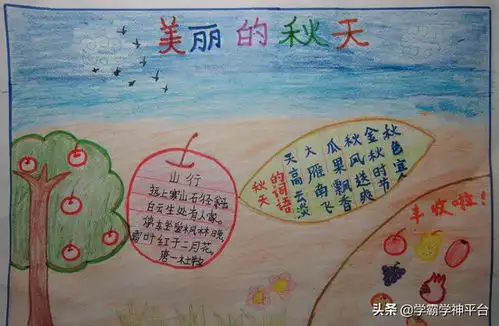 美丽的秋天
山行
远上寒山石径斜
白云生处有人家。
停车坐爱枫林晚,
霜叶红于二月花。
唐一杜牧
秋天
的词语
天高云淡
大雁南飞
瓜果飘香
秋风送爽
金秋时节
秋色宜
丰收啦!
头条 @学霸学神平台